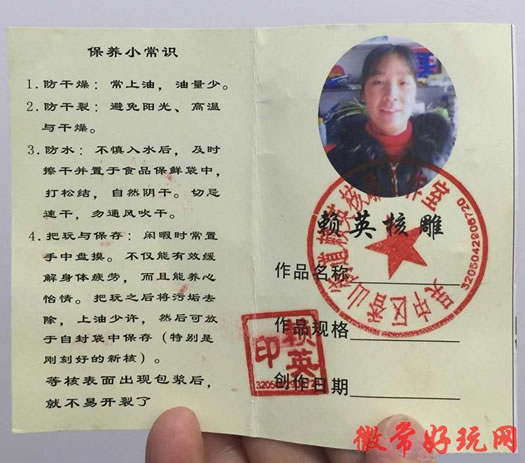 保养小常识
1.防干燥：常上油，油量少。
2.防干裂：避免阳光、高温
与干燥。
3.防水：不慎入水后，及时
擦干并置于食品保鲜袋中，
打松结，自然阴干。切忌
速干，勿通风吹干。
4.把玩与保存：闲暇时常置
手中盘摸。不仅能有效缓
解身体疲劳，而且能养心
怡情。把玩之后将污垢去
除，上油少许，然后可放
于自封袋中保存（特别是
刚刻好的新核）。
等核表面出现包浆后，
就不易开裂了
赖英核雕
3205042806720
作品名称
作品规格
创作日期
赖英
印
徵常好玩网